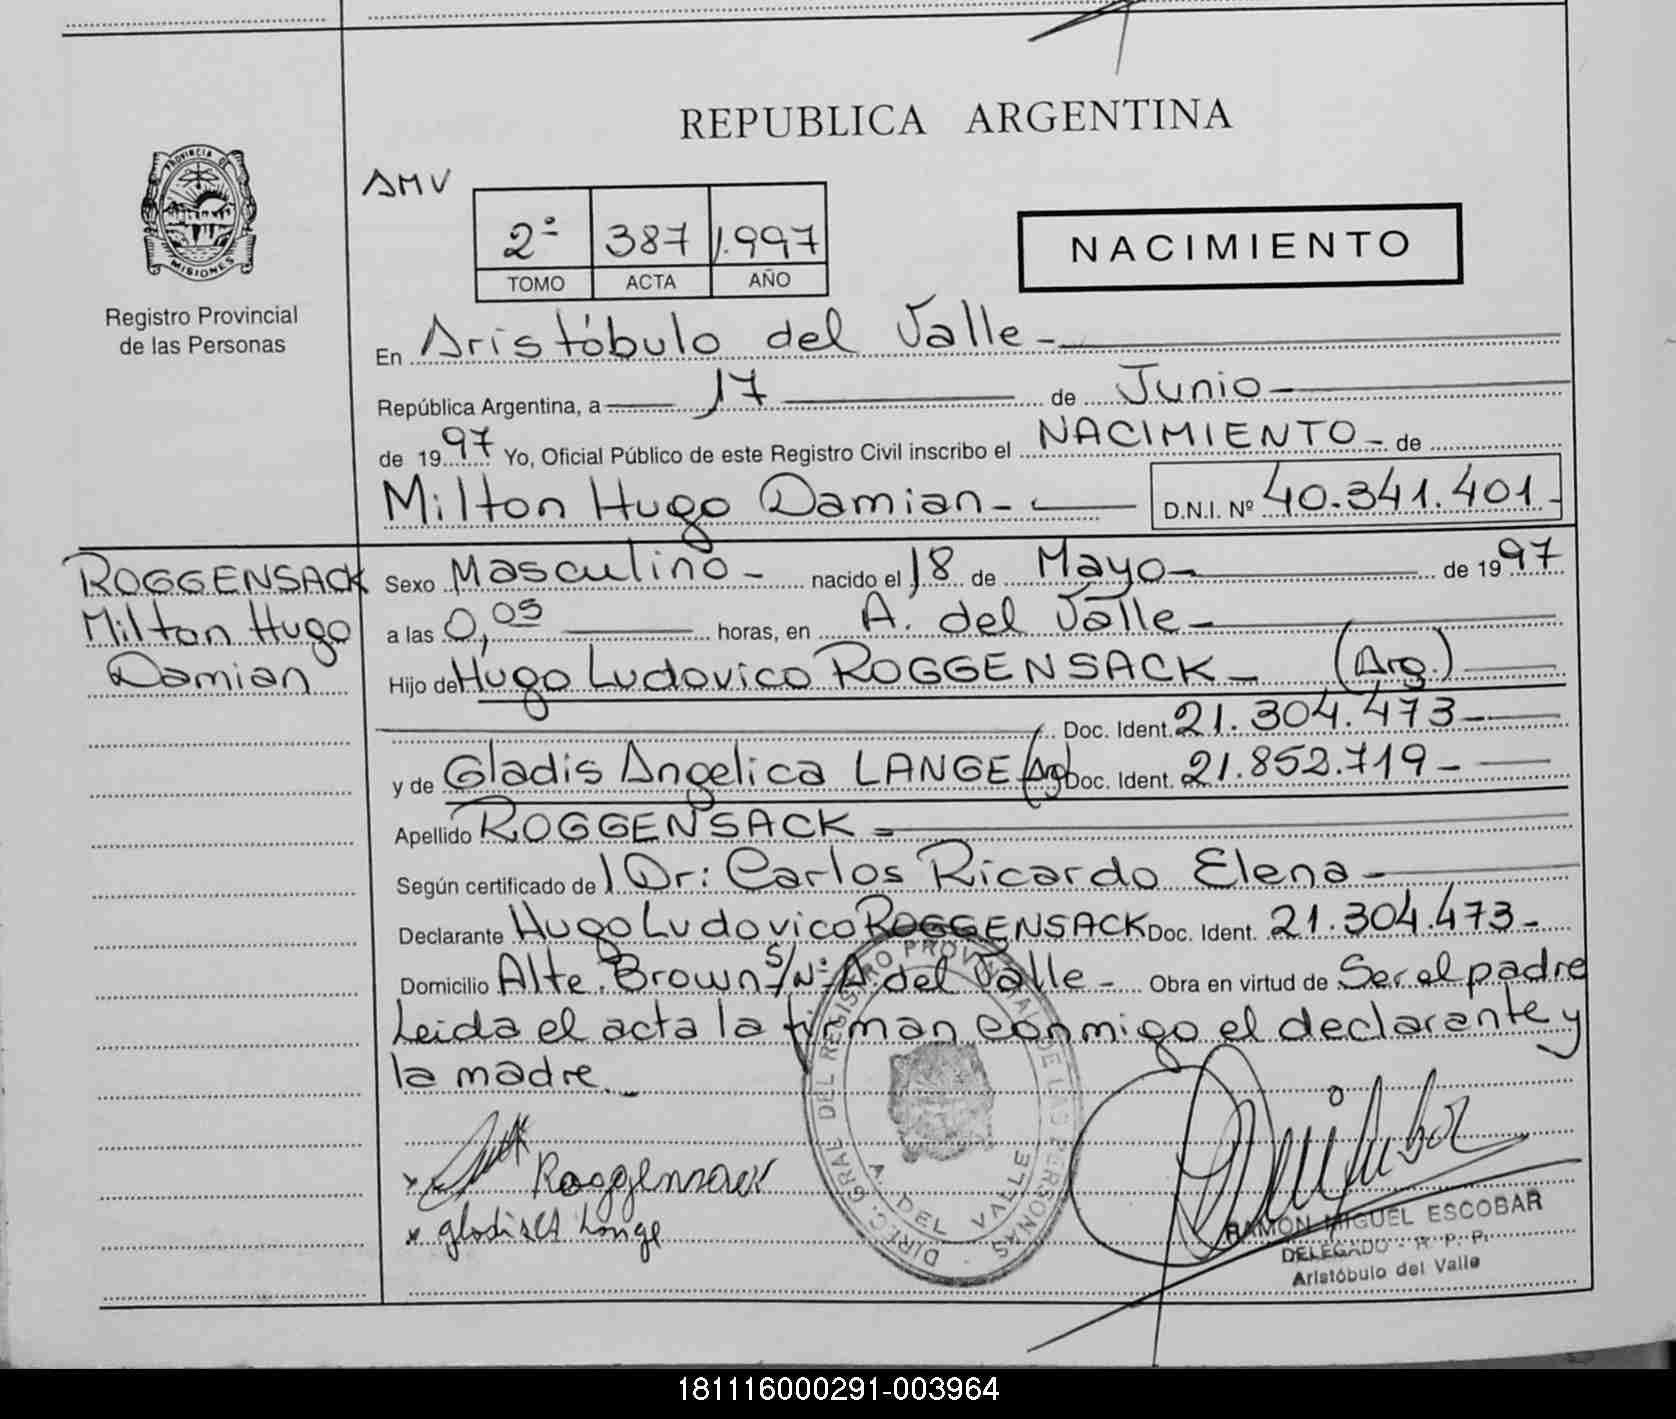 REPUBLICA ARGENTINA
PROVINCIA DE
MISIONES
Registro Provincial
de las Personas
AMV
2º 387 1.997
TOMO ACTA AÑO
NACIMIENTO
En Aristóbulo del Valle -
República Argentina, a 17 de Junio -
de 1997 Yo, Oficial Público de este Registro Civil inscribo el NACIMIENTO - de
Milton Hugo Damian - D.N.I. Nº 40.341.401.-
ROGGENSACK
Milton Hugo
Damian
Sexo Masculino - nacido el 18 de Mayo - de 1997
a las 0,05 horas, en A. del Valle -
Hijo de Hugo Ludovico ROGGENSACK - (Arg.)
Doc. Ident. 21.304.473 -
y de Gladis Angelica LANGE (Arg) Doc. Ident. 21.852.719 -
Apellido ROGGENSACK -
Según certificado de l Dr: Carlos Ricardo Elena -
Declarante Hugo Ludovico ROGGENSACK Doc. Ident. 21.304.473 -
Domicilio Alte. Brown S/Nº A. del Valle - Obra en virtud de Ser el padre
Leida el acta la firman conmigo el declarante y
la madre. -
DIREC. GRAL. DEL REGISTRO PROVINCIAL DE LAS PERSONAS
A. DEL VALLE
x Roggensack
x Lange
RAMÓN MIGUEL ESCOBAR
DELEGADO - R. P. P.
Aristóbulo del Valle
181116000291-003964